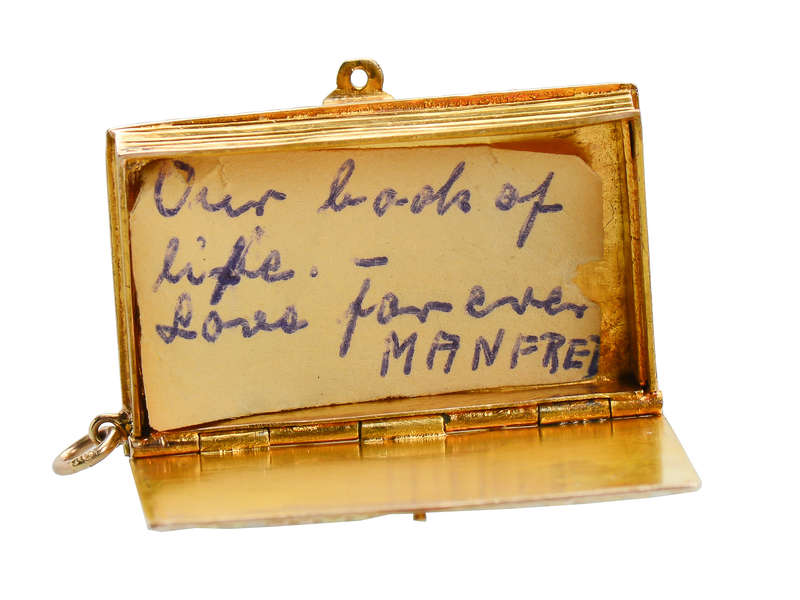 Our book of
life. –
Love for ever
MANFRED